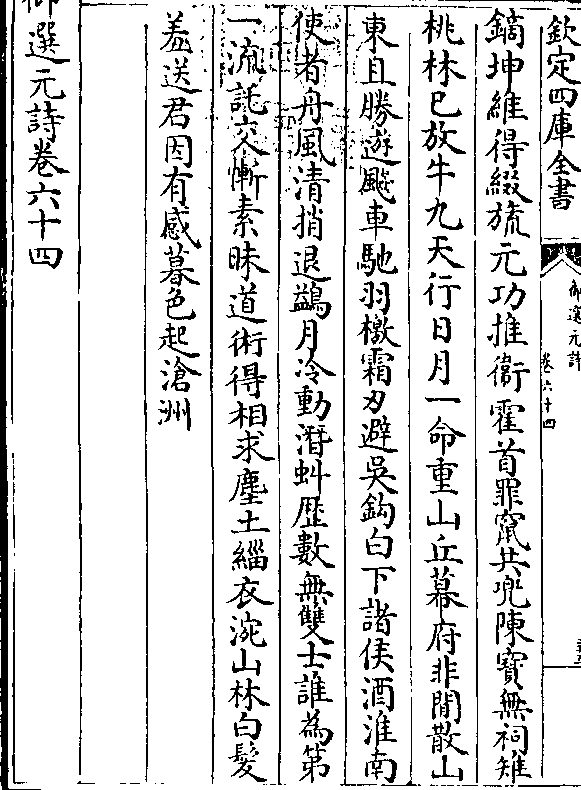 欽定四庫全書
御選元詩
卷六十四
鏑坤維得綴旒元功推衞霍首罪竄共兜陳寶無祠雉
桃林已放牛九天行日月一命重山丘幕府非閒散山
東且勝遊飈車馳羽檄霜刃避吳鈎白下諸侯酒淮南
使者舟風清捎退鷁月冷動潛虯歴數無雙士誰為第
一流託交慚素昧道術得相求塵土緇衣涴山林白髮
羞送君因有感暮色起滄洲
御選元詩卷六十四